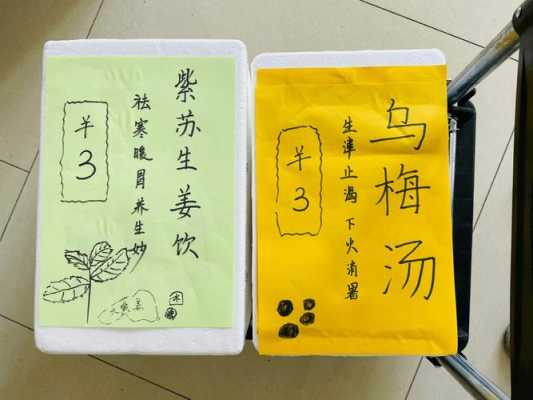 紫苏生姜饮
祛寒暖胃养生妙
¥3
大黄姜
冰
乌梅汤
生津止渴 下火消署
¥3